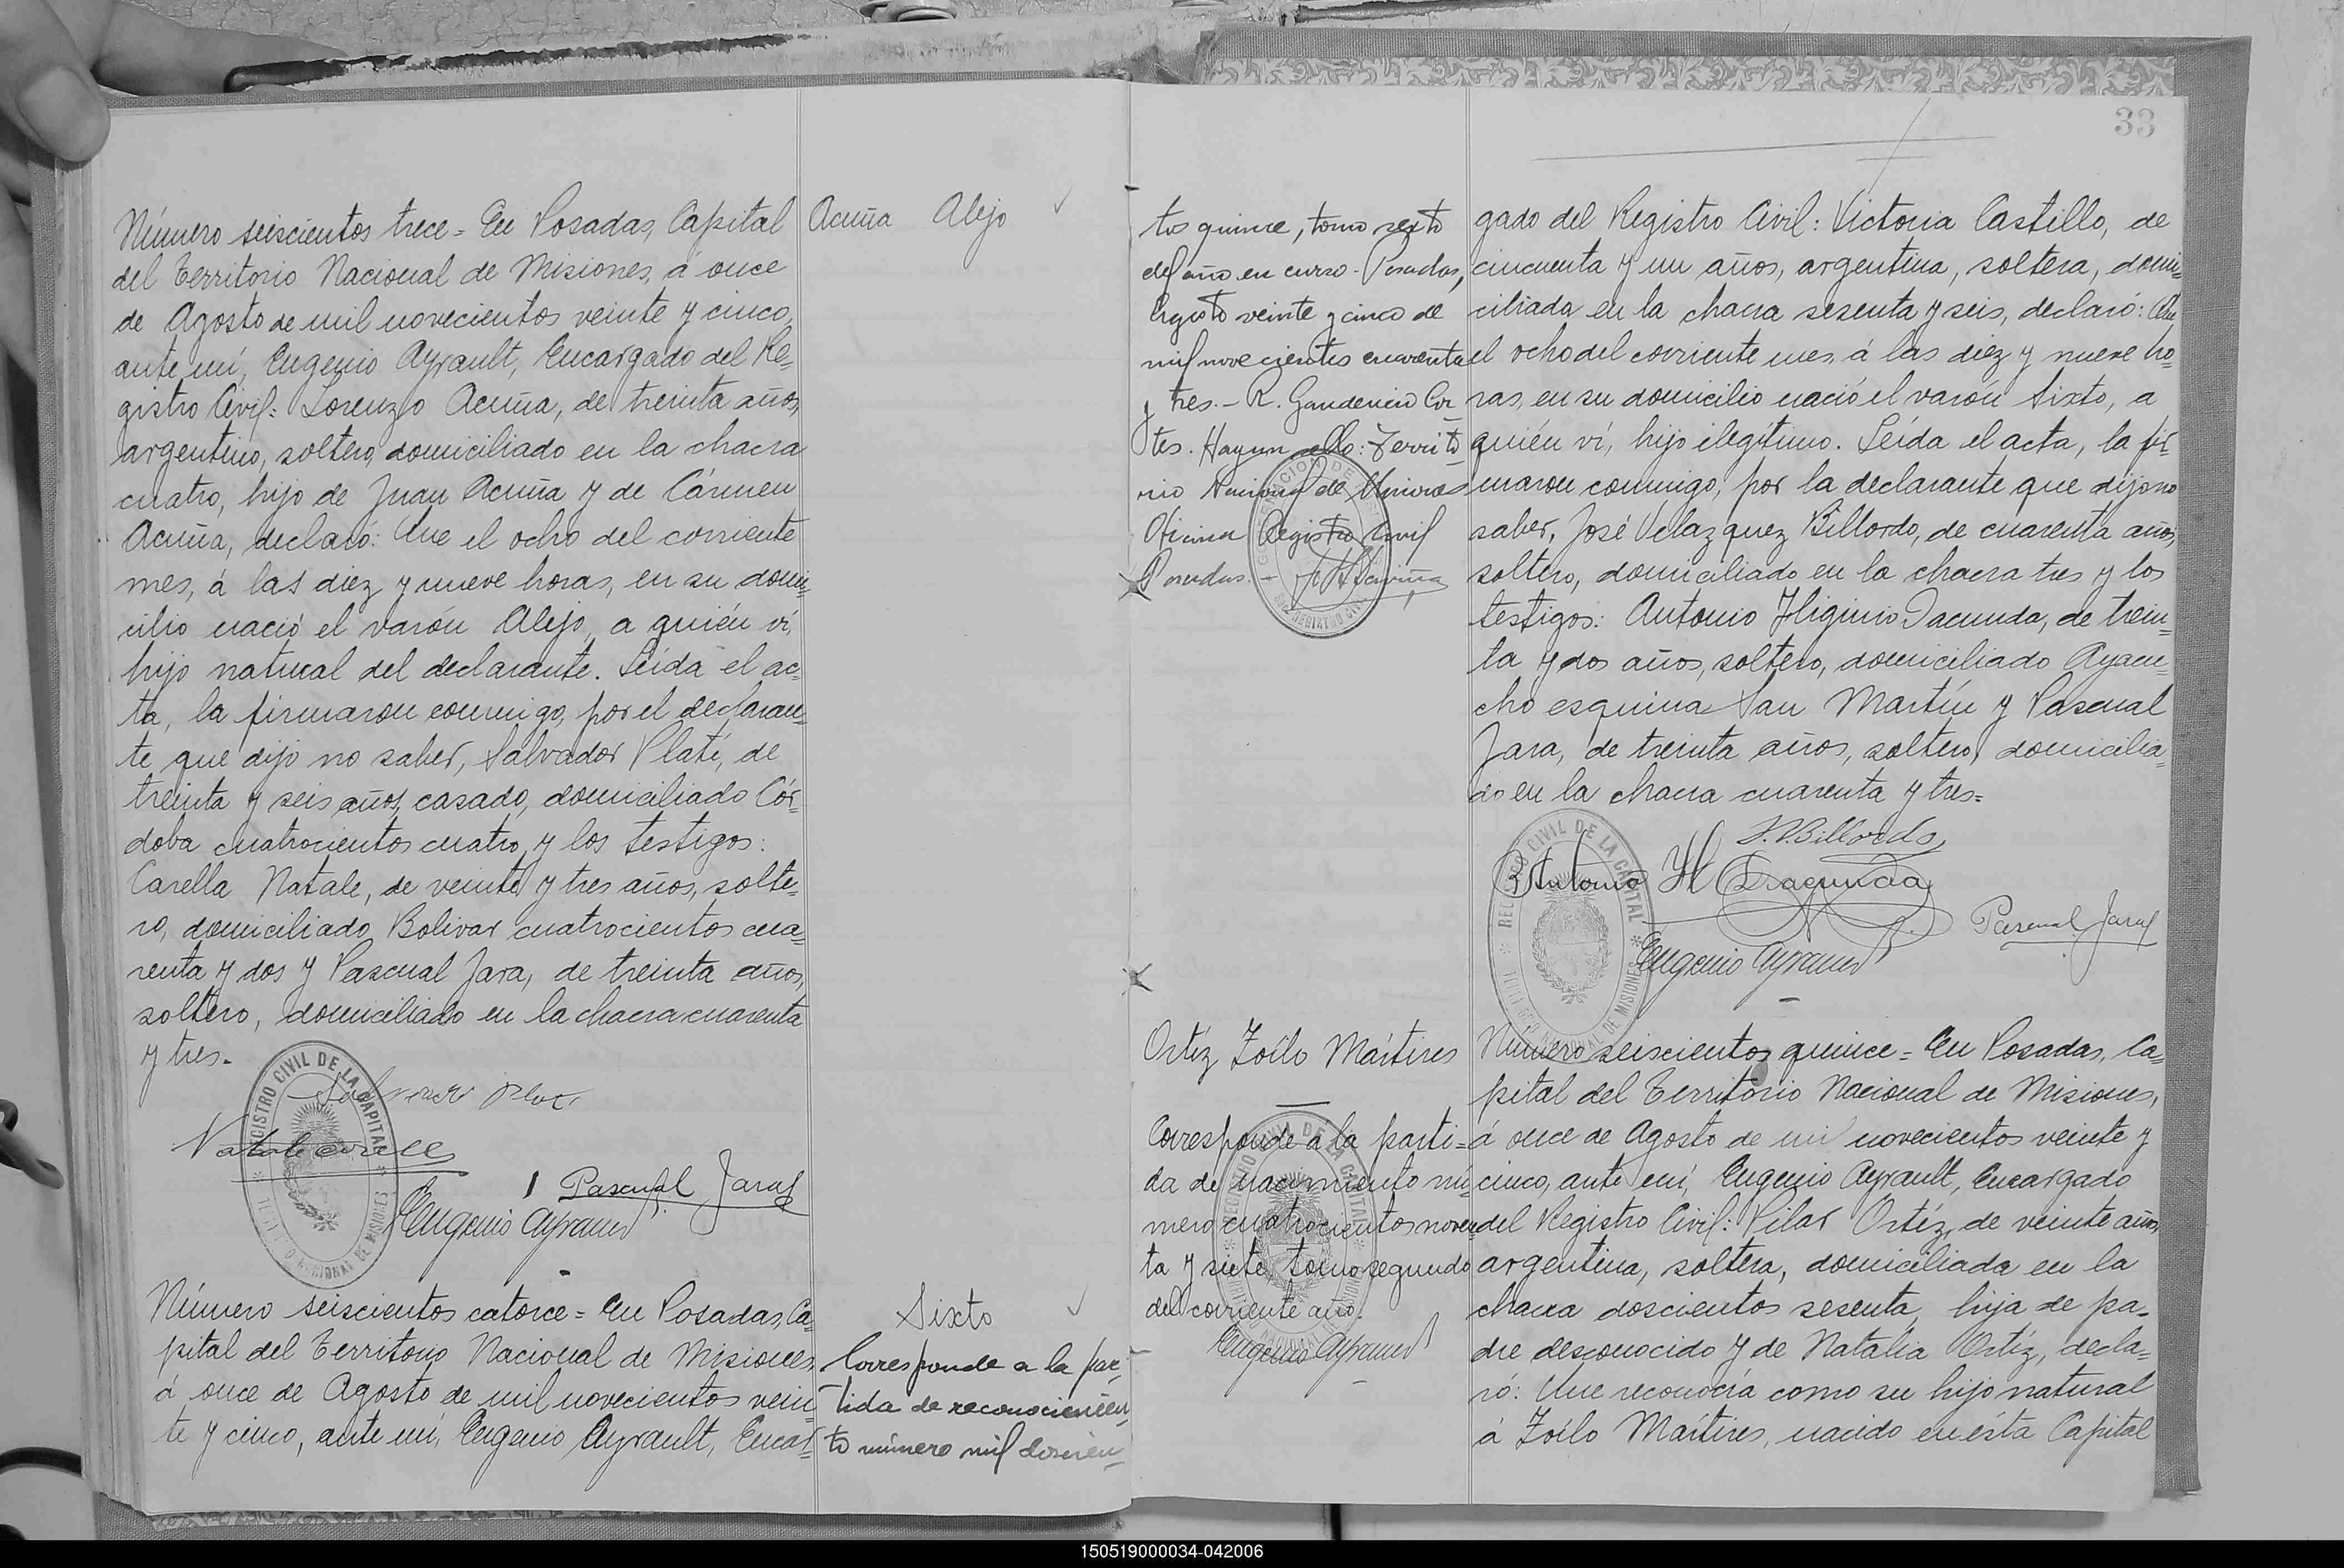 Número seiscientos trece = En Posadas, Capital
del Territorio Nacional de Misiones, á once
de Agosto de mil novecientos veinte y cinco,
ante mí, Eugenio Ayrault, Encargado del Re=
gistro Civil: Lorenzo Acuña, de treinta años,
argentino, soltero, domiciliado en la chacra
cuatro, hijo de Juan Acuña y de Cármen
Acuña, declaró: Que el ocho del corriente
mes, á las diez y nueve horas, en su domi=
cilio nació el varón Alejo, a quién ví,
hijo natural del declarante. Leída el ac=
ta, la firmaron conmigo, por el declaran=
te que dijo no saber, Salvador Platí, de
treinta y seis años, casado, domiciliado Cór=
doba cuatrocientos cuatro, y los testigos:
Carella Natale, de veinte y tres años, solte=
ro, domiciliado Bolivar cuatrocientos cua=
renta y dos y Pascual Jara, de treinta años,
soltero, domiciliado en la chacra cuarenta
y tres.=
REGISTRO CIVIL DE LA CAPITAL
NACIONAL DE MISIONES
Pascual Jara
Eugenio Ayrault
Acuña Alejo
Número seiscientos catorce = En Posadas, Ca=
pital del Territorio Nacional de Misiones,
á once de Agosto de mil novecientos vein=
te y cinco, ante mí, Eugenio Ayrault, Encar=
Sixto
Corresponde a la par=
tida de reconocimien=
to número mil doscien=
tos quince, tomo sexto
del año en curso - Posadas,
Agosto veinte y cinco de
mil novecientos cuarenta
y tres. - R. Gaudencio Cor
tes. Hay un sello: Territo
rio Nacional de Misiones
Oficina Registro Civil
Posadas.
33
gado del Registro Civil: Victoria Castillo, de
cincuenta y un años, argentina, soltera, domi=
ciliada en la chacra sesenta y seis, declaró: Que
el ocho del corriente mes, á las diez y nueve ho=
ras, en su domicilio nació el varón Sixto, a
quién ví, hijo ilegítimo. Leída el acta, la fir=
maron conmigo, por la declarante que dijo no
saber, José Velazquez Billordo, de cuarenta años,
soltero, domiciliado en la chacra tres y los
testigos: Antonio Higinio Dacunda, de trein=
ta y dos años, soltero, domiciliado Ayacu=
cho esquina San Martín y Pascual
Jara, de treinta años, soltero, domicilia=
do en la chacra cuarenta y tres.=
J. V. Billordo
Antonio H Dacunda
Pascual Jara
Eugenio Ayrault
REGISTRO CIVIL DE LA CAPITAL
DE MISIONES
Ortíz Zoílo Mártires
Corresponde a la parti=
da de nacimiento nú=
mero cuatrocientos noven
ta y siete, tomo segundo
del corriente año.
Eugenio Ayrault
Número seiscientos quince = En Posadas, Ca=
pital del Territorio Nacional de Misiones,
á once de Agosto de mil novecientos veinte y
cinco, ante mí, Eugenio Ayrault, Encargado
del Registro Civil: Pilar Ortíz, de veinte años,
argentina, soltera, domiciliada en la
chacra doscientos sesenta, hija de pa=
dre desconocido y de Natalia Ortíz, decla=
ró: Que reconocía como su hijo natural
á Zoílo Mártires, nacido en ésta Capital
150519000034-042006